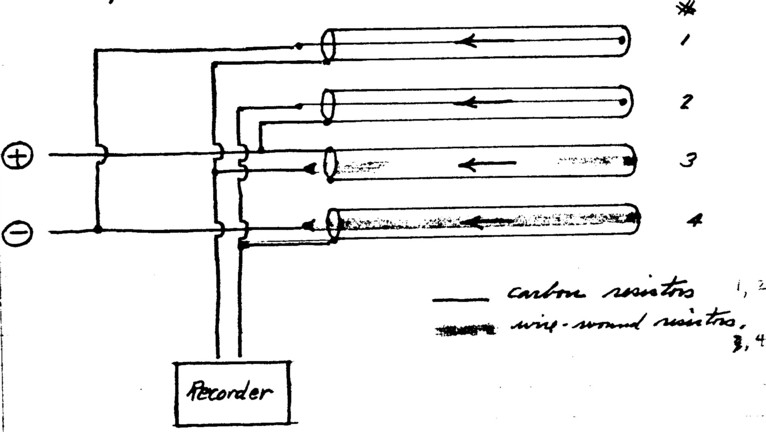 1
2
⊕
3
⊖
4
carbon resistors 1, 2
wire-wound resistors.
3, 4
Recorder